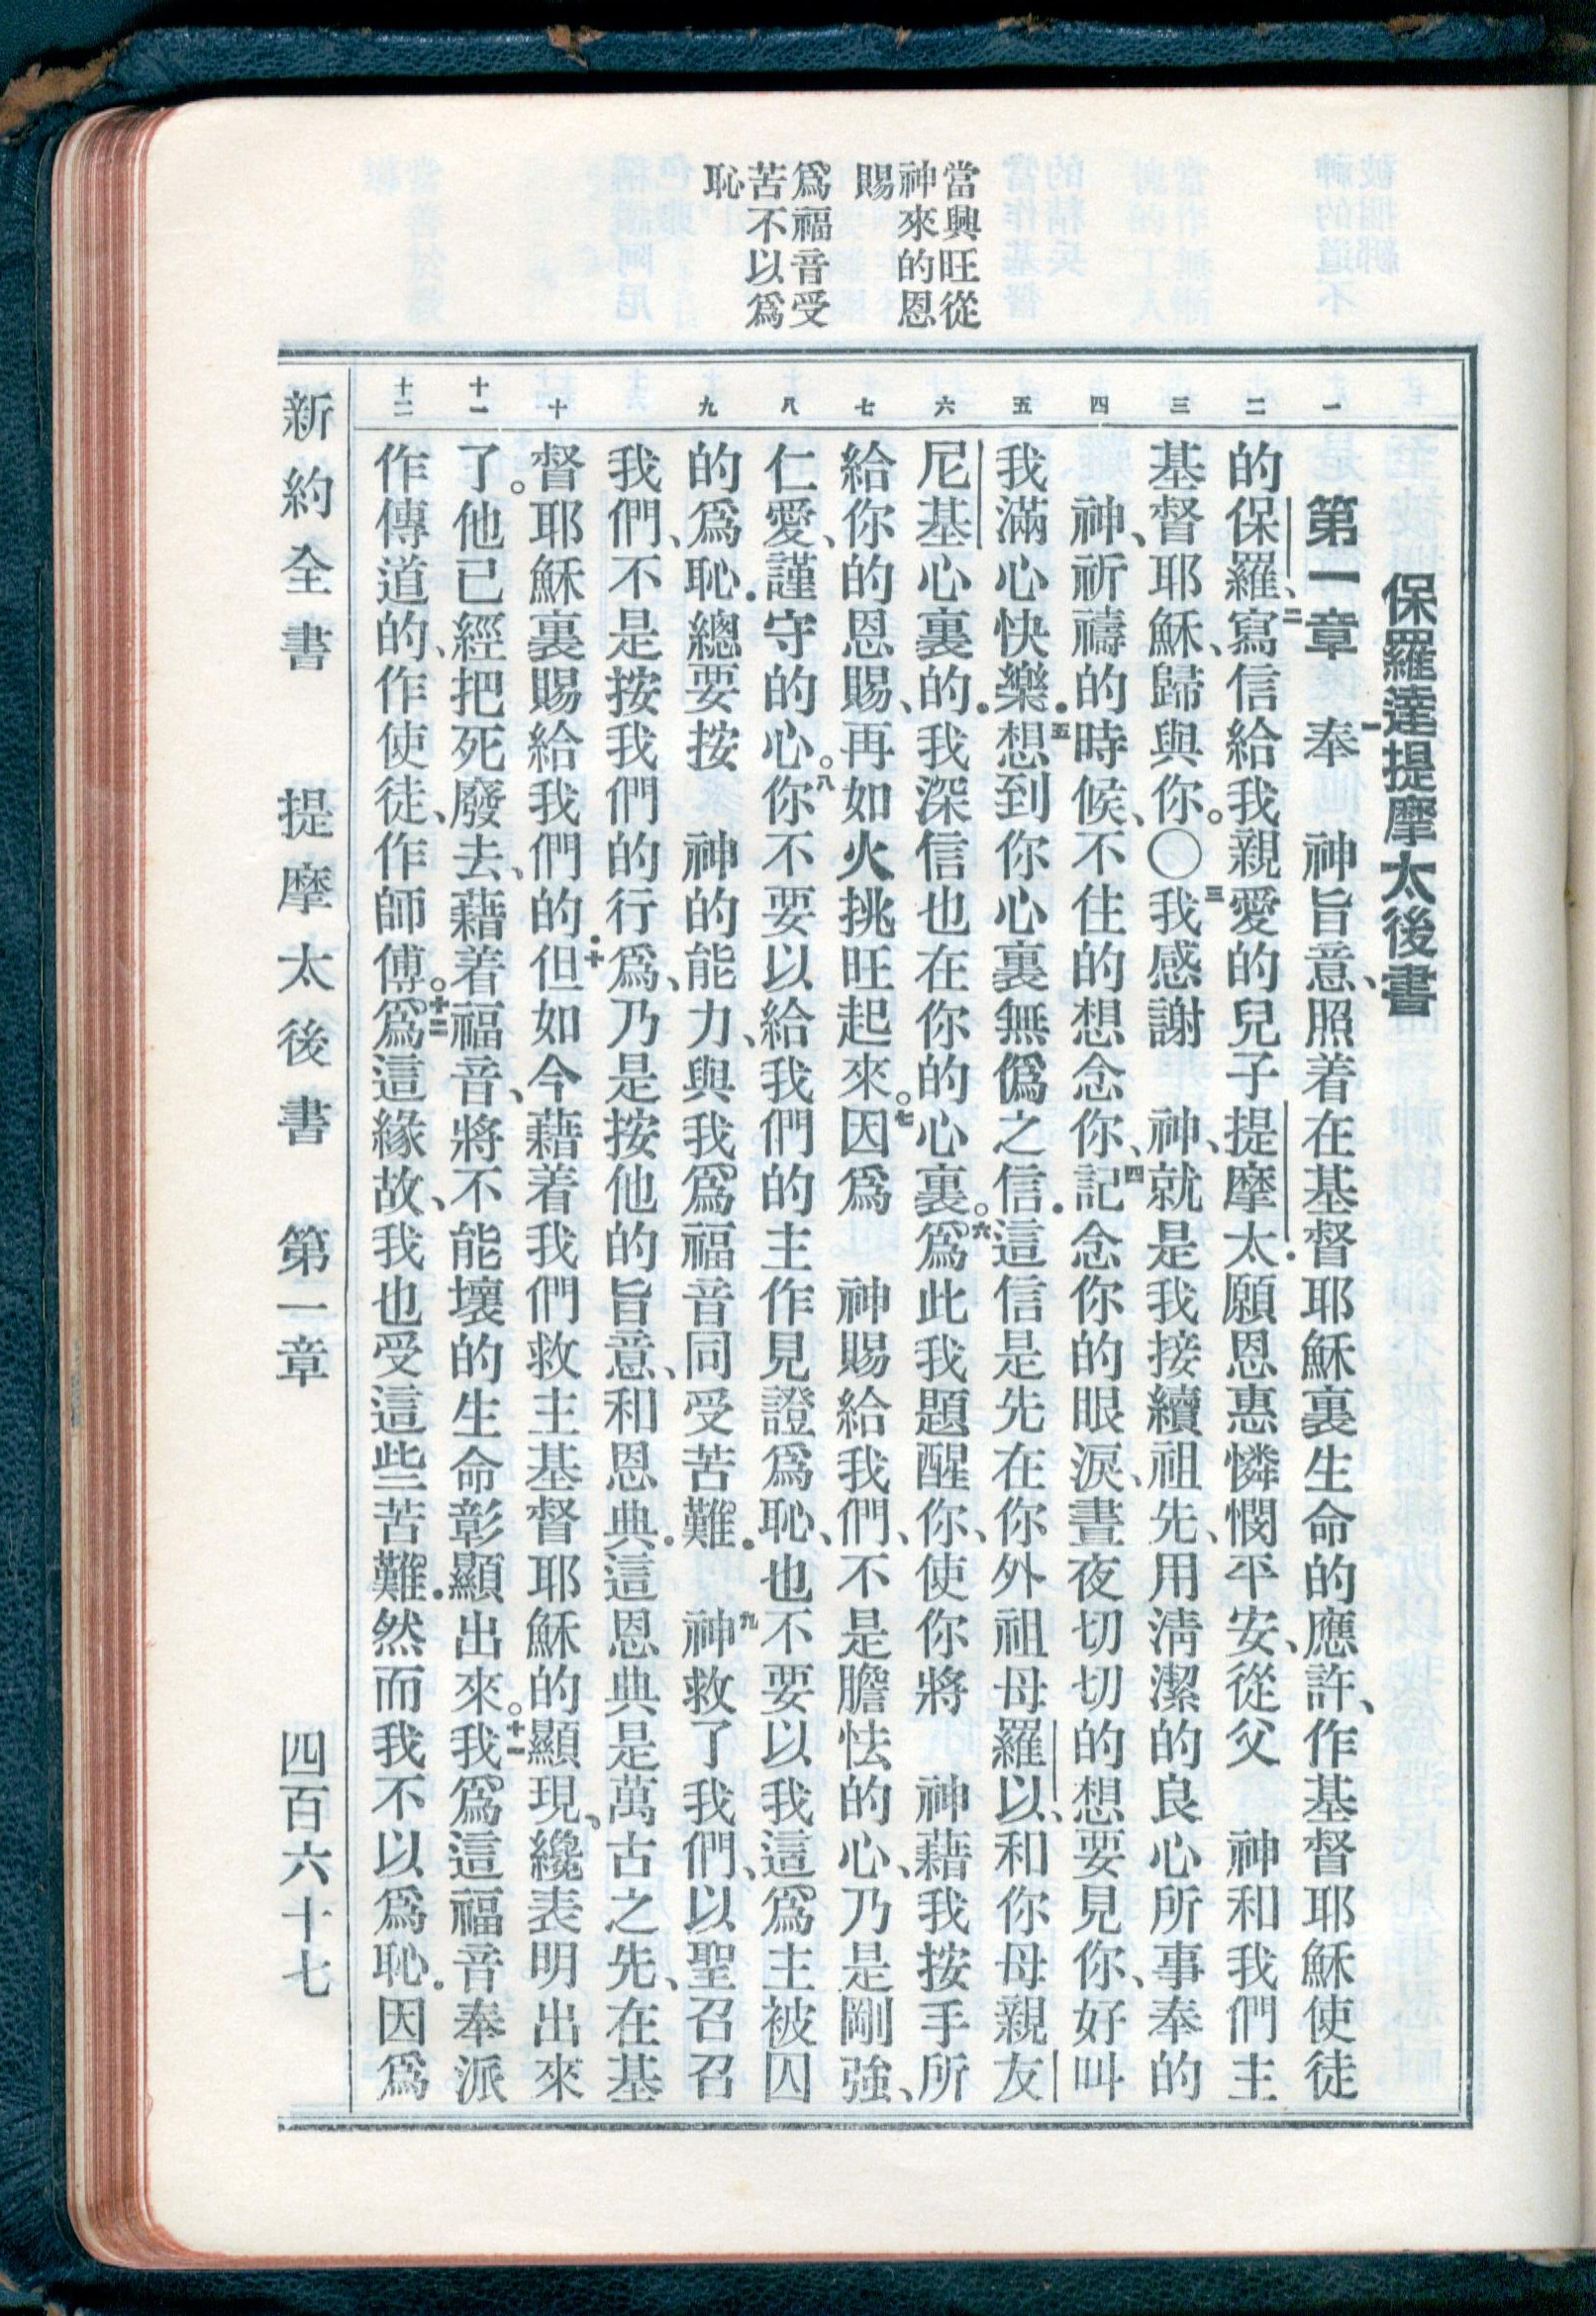 當興旺從
神來的恩
賜
爲福音受
苦不以爲
恥
一
二
三
四
五
六
七
八
九
十
十一
十二
保羅達提摩太後書
第一章 一奉 神旨意、照着在基督耶穌裏生命的應許、作基督耶穌使徒
的保羅、二寫信給我親愛的兒子提摩太．願恩惠憐憫平安、從父 神和我們主
基督耶穌、歸與你。〇三我感謝 神、就是我接續祖先、用淸潔的良心所事奉的
神、祈禱的時候、不住的想念你、四記念你的眼淚、晝夜切切的想要見你、好叫
我滿心快樂．五想到你心裏無僞之信．這信是先在你外祖母羅以、和你母親友
尼基心裏的．我深信也在你的心裏。六爲此我題醒你、使你將 神藉我按手所
給你的恩賜、再如火挑旺起來。七因爲 神賜給我們、不是膽怯的心、乃是剛強、
仁愛、謹守的心。八你不要以給我們的主作見證爲恥、也不要以我這爲主被囚
的爲恥．總要按 神的能力、與我爲福音同受苦難．九 神救了我們、以聖召召
我們、不是按我們的行爲、乃是按他的旨意、和恩典．這恩典是萬古之先、在基
督耶穌裏賜給我們的．十但如今藉着我們救主基督耶穌的顯現、纔表明出來
了。他已經把死廢去、藉着福音、將不能壞的生命彰顯出來。十一我爲這福音奉派
作傳道的、作使徒、作師傅。十二爲這緣故、我也受這些苦難．然而我不以爲恥。因爲
新約全書 提摩太後書 第一章 四百六十七